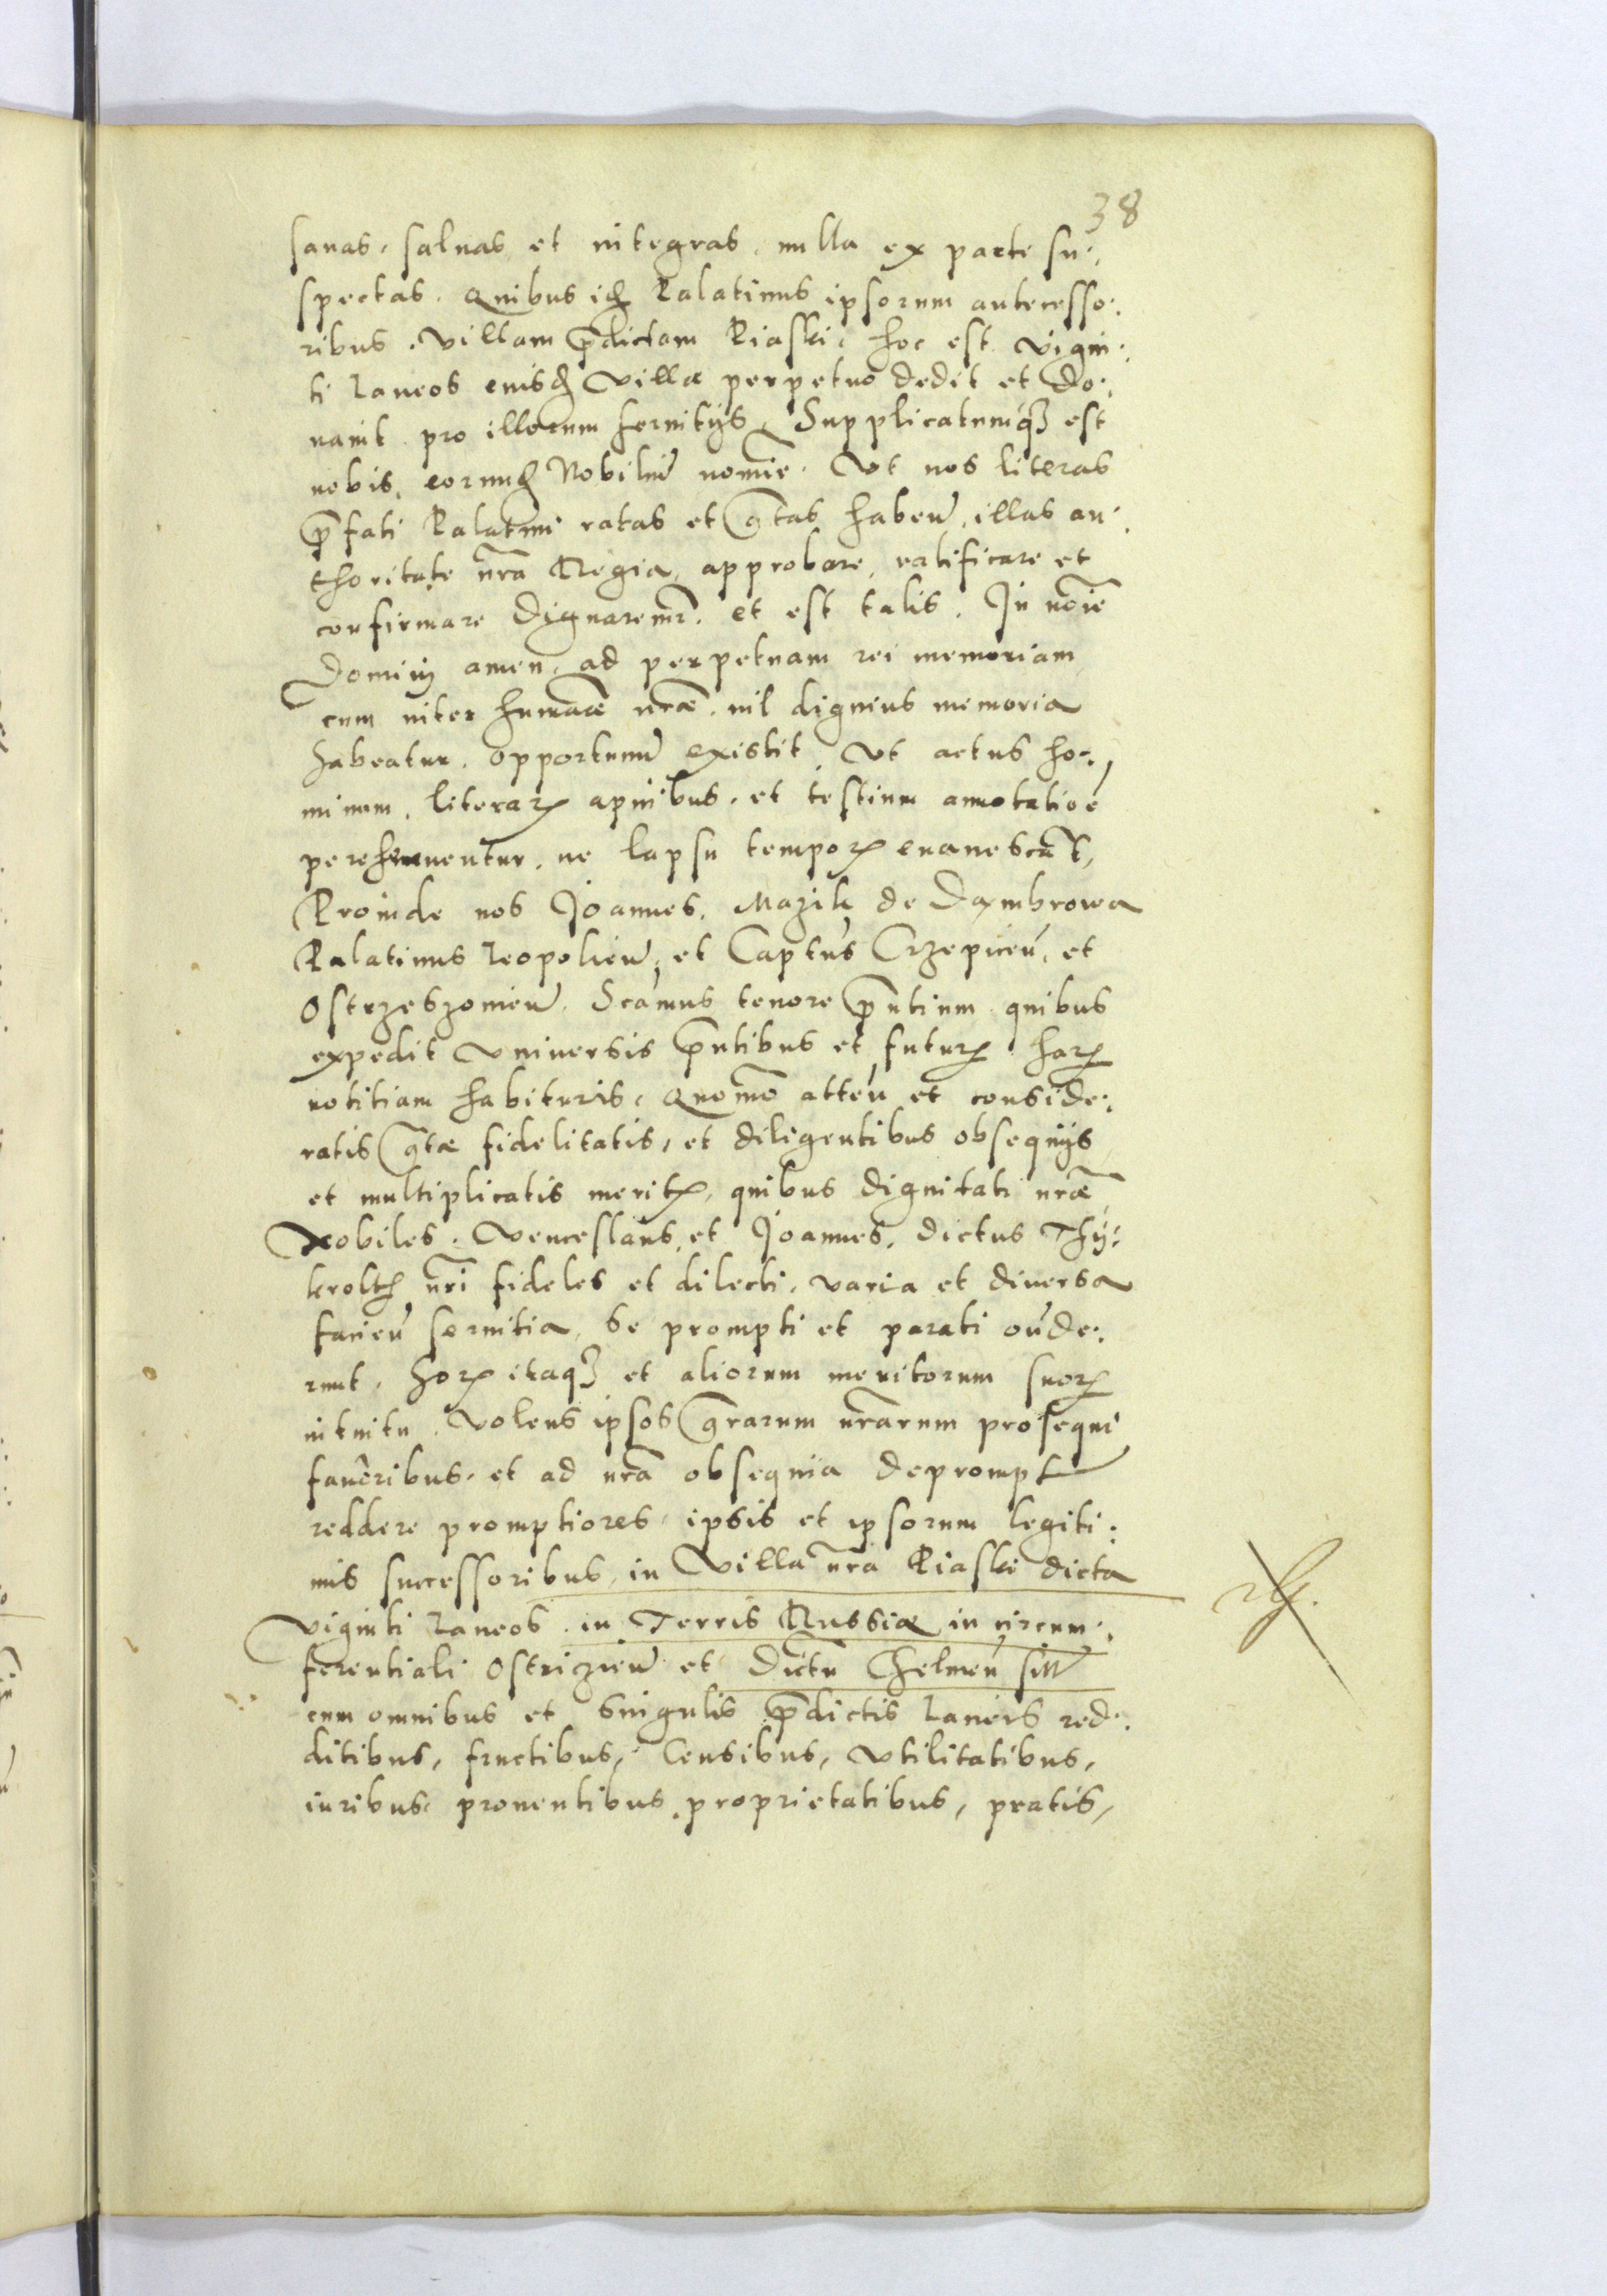 38
sanas, saluas et integras, nulla ex parte su:
spectas. Quibus idē Palatinus ipsorum antecesso:
ribus, villam p̄dictam Piaski, hoc est vigin:
ti Laneos eiusd Villæ perpetuo dedit et do:
nauit pro illorum seruitijs, Supplicatumq3 est
nobis, eorund Nobiliū nomīe. Vt nos literas
p̄fati Palatini ratas et g̃tas habeñ, illas au:
thoritate nr̃a Regia, approbare, ratificare et
confirmare dignaremr̃. et est talis. In noīe
Dominj amen, ad perpetuam rei memoriam
cum inter humãæ nr̃æ, nil dignius memoria
habeatur, opportunū existit, vt actus ho:
minum, literarꝝ apicibus, et testium annotatiōe
perehnnentur, ne lapsu temporꝝ euanescãt,
Proinde nos Joannes, Mazik de Dambrowa
Palatinus Leopolieñ, et Captus̃ Crzepiceñ, et
Ostrzeszouieñ. Scamus tenore p̄ntium quibus
expedit vniuersis p̄ntibus et futurꝝ harꝝ
notitiam habituris, quomõ atteñ et conside:
ratis g̃tæ fidelitatis, et diligentibus obsequijs
et multiplicatis meritꝝ, quibus dignitati nr̃æ
Nobiles, Venceslaus, et Joannes, dictus Thy:
krolth nr̃i fideles et dilecti, varia et diuersa
facieñ seruitia, se prompti et parati oñde:
runt, horꝝ itaq3 et aliorum meritorum suorꝝ
intuitu, volens ipsos gr̃arum nr̃arum prosequi
fauoribus, et ad nr̃a obsequia deprompt
reddere promptiores, ipsis et ipsorum legiti:
mis successoribus, in Villa nr̃a Piaski dicta
viginti Laneos, in Terris Russiæ in circum:
ferentiali Ostriczieñ et dictu Chelmeñ sitt
cum omnibus et singulis p̄dictis Laneis red:
ditibus, fructibus, Censibus, vtilitatibus,
iuribus, prouentibus, proprietatibus, pratis,